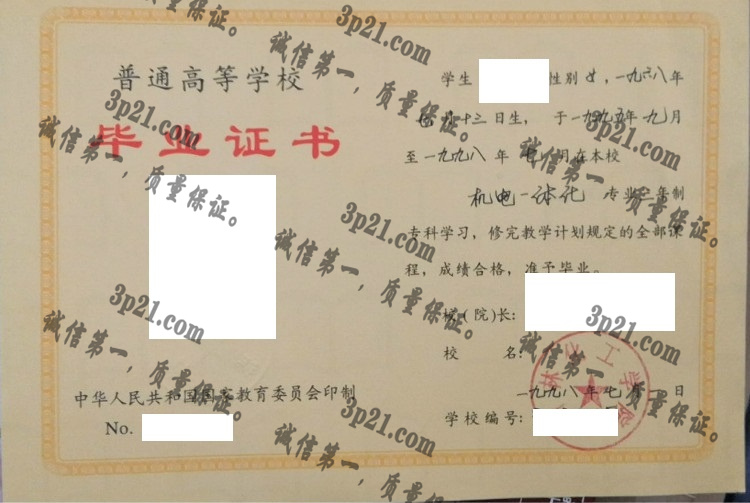 普通高等学校
毕业证书
中华人民共和国国家教育委员会印制
No.
学生 性别 女，一九六八年
十三日生，于一九九五年九月
至一九九八年七月在本校
机电一体化 专业三年制
专科学习，修完教学计划规定的全部课
程，成绩合格，准予毕业。
校(院)长:
校 名:
化工学院
一九九八年七月一日
学校编号:
3p21.com
诚信第一，质量保证。
3p21.com
诚信第一，质量保证。
3p21.com
诚信第一，质量保证。
3p21.com
诚信第一，质量保证。
3p21.com
诚信第一，质量保证。
3p21.com
诚信第一，质量保证。
诚信第一，质量保证。
质量保证。